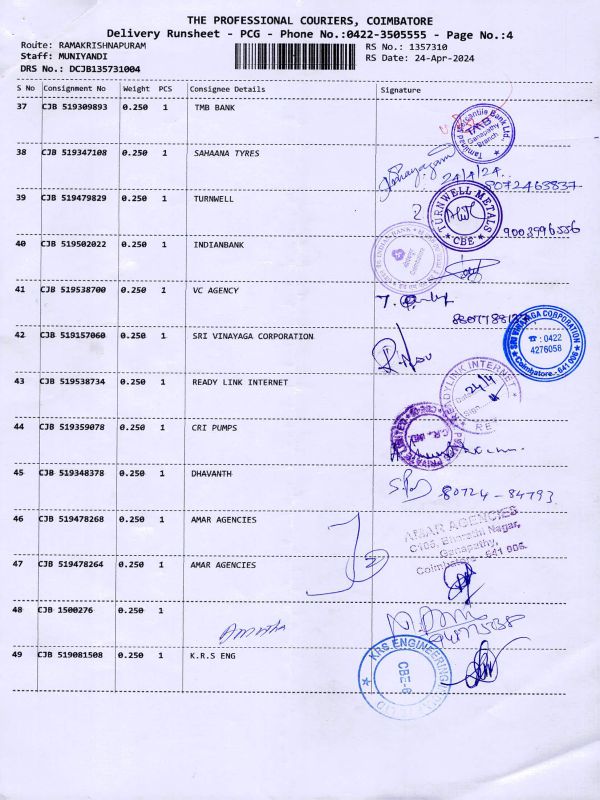 THE PROFESSIONAL COURIERS, COIMBATORE
Delivery Runsheet - PCG - Phone No.:0422-3505555 - Page No.:4
Route: RAMAKRISHNAPURAM
RS No.: 1357310
Staff: MUNIYANDI
RS Date: 24-Apr-2024
DRS No.: DCJB135731004
S No Consignment No Weight PCS Consignee Details Signature
37 CJB 519309893 0.250 1 TMB BANK
Tamilnad Mercantile Bank Ltd.
TMB
Ganapathy
Branch
38 CJB 519347108 0.250 1 SAHAANA TYRES
24/4/24
8072463837
39 CJB 519479829 0.250 1 TURNWELL
TURNWELL METALS
CBE
9003996556
40 CJB 519502022 0.250 1 INDIANBANK
INDIAN BANK
Coimbatore
41 CJB 519538700 0.250 1 VC AGENCY
42 CJB 519157060 0.250 1 SRI VINAYAGA CORPORATION
SRI VINAYAGA CORPORATION
☎ : 0422
4276058
Coimbatore - 641 006
43 CJB 519538734 0.250 1 READY LINK INTERNET
READYLINK INTERNET
24/4
44 CJB 519359078 0.250 1 CRI PUMPS
PRIVATE LIMITED
45 CJB 519348378 0.250 1 DHAVANTH
80724-84793
46 CJB 519478268 0.250 1 AMAR AGENCIES
AMAR AGENCIES
C106, Bharathi Nagar,
Ganapathy,
Coimbatore - 641 006.
47 CJB 519478264 0.250 1 AMAR AGENCIES
48 CJB 1500276 0.250 1
49 CJB 519081508 0.250 1 K.R.S ENG
KRS ENGINEERING
CBE-6